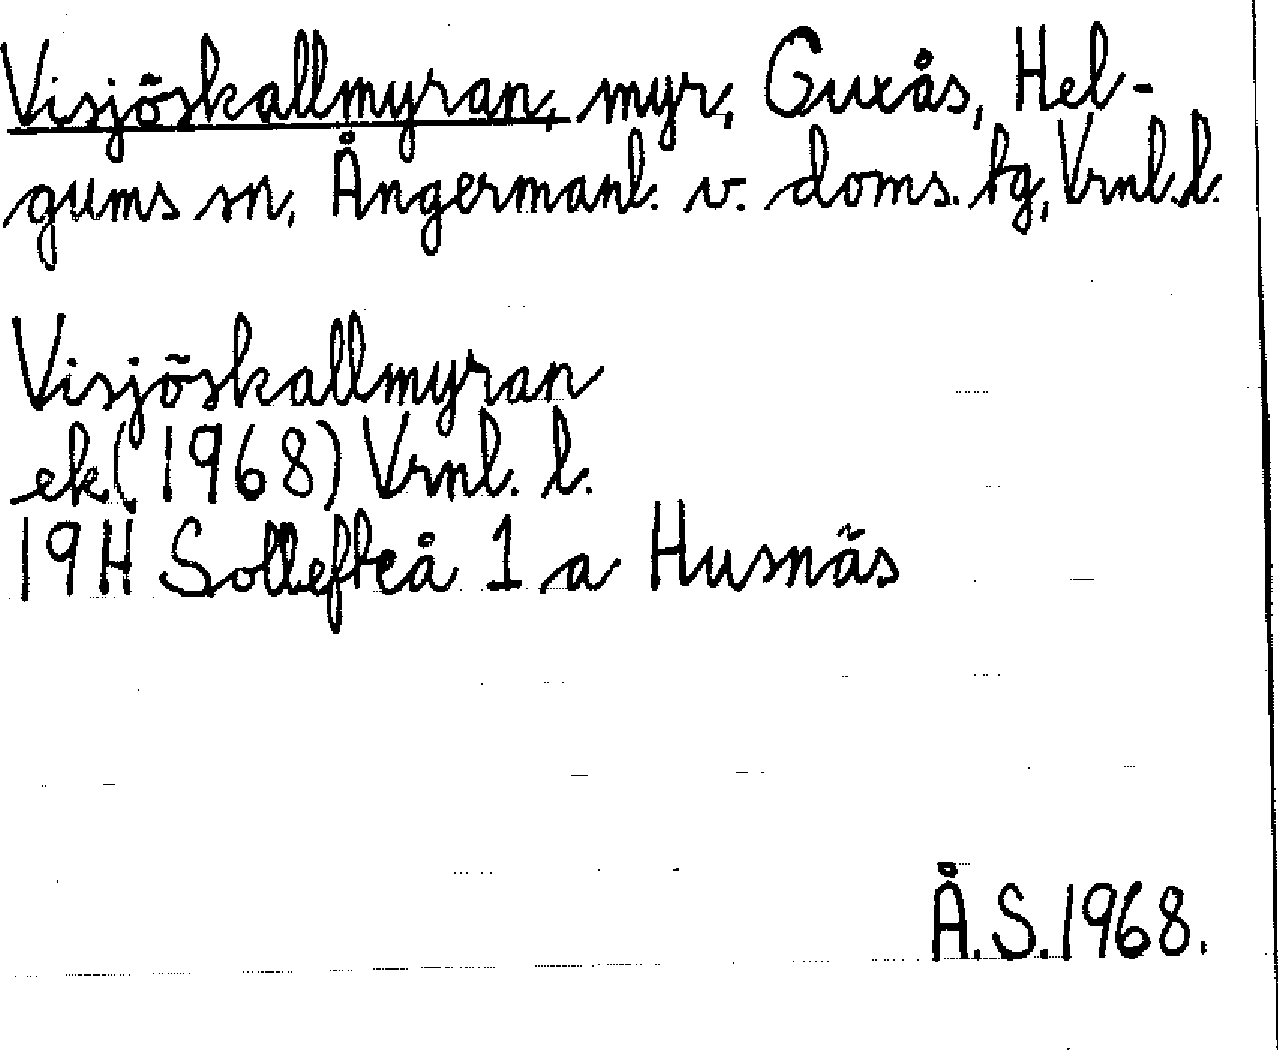 Visjöskallmyran, myr, Guxås, Hel-
gums sn, Ångermanl. v. doms. tg, Vrnl. l.
Visjöskallmyran
ek (1968) Vrnl. l.
19H Sollefteå 1 a Husnäs
Å.S. 1968.